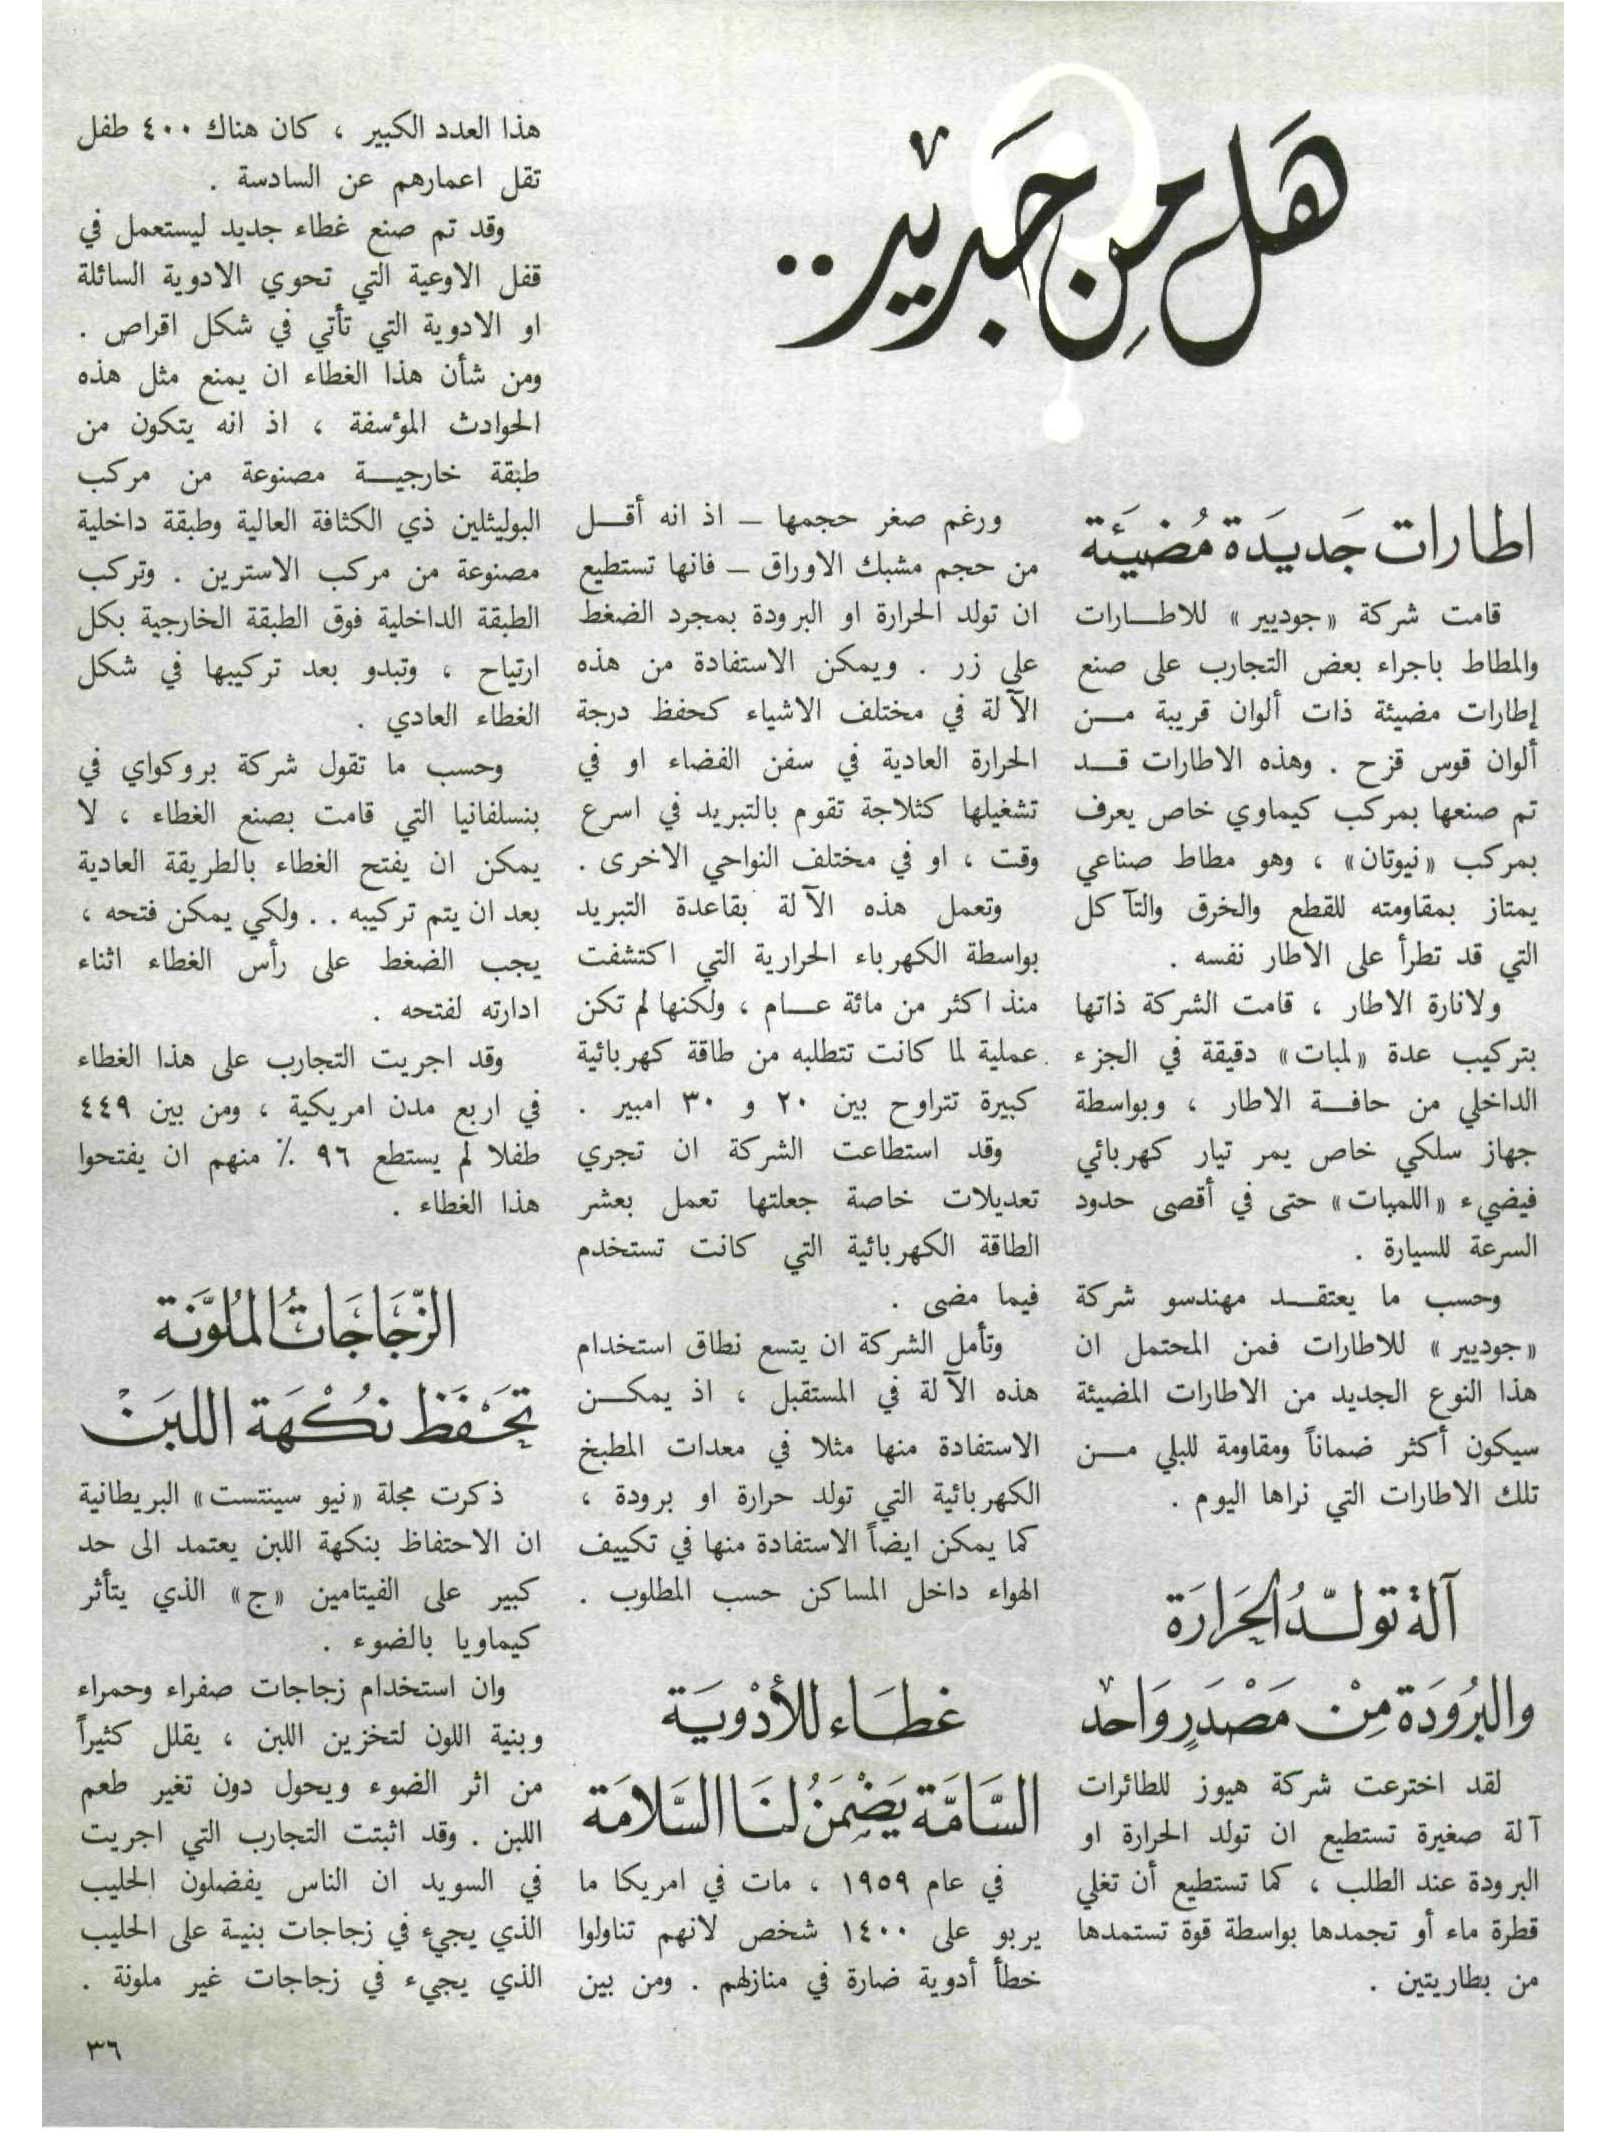 هَل مِن جَديد ..
اطارات جَديدَة مُضيَئة
قامت شركة «جوديير» للاطـارات
والمطاط باجراء بعض التجارب على صنع
إطارات مضيئة ذات ألوان قريبة مـن
ألوان قوس قزح . وهذه الاطارات قـد
تم صنعها بمركب كيماوي خاص يعرف
بمركب «نيوتان» ، وهو مطاط صناعي
يمتاز بمقاومته للقطع والخرق والتآكل
التي قد تطرأ على الاطار نفسه .
ولانارة الاطار ، قامت الشركة ذاتها
بتركيب عدة «لمبات» دقيقة في الجزء
الداخلي من حافـة الاطار ، وبواسطة
جهاز سلكي خاص يمر تيار كهربائي
فيضيء «اللمبات» حتى في أقصى حدود
السرعة للسيارة .
وحسب ما يعتقـد مهندسو شركة
«جوديير» للاطارات فمن المحتمل ان
هذا النوع الجديد من الاطارات المضيئة
سيكون أكثر ضماناً ومقاومة للبلي مـن
تلك الاطارات التي نراها اليوم .
آلة تولـّدُ الحَرارَة
والبُرودَة مِنْ مَصْدَرٍ وَاحد
لقد اخترعت شركة هيوز للطائرات
آلة صغيرة تستطيع ان تولد الحرارة او
البرودة عند الطلب ، كما تستطيع أن تغلي
قطرة ماء أو تجمدها بواسطة قوة تستمدها
من بطاريتين .
ورغم صغر حجمها – اذ انه أقـل
من حجم مشبك الاوراق – فانها تستطيع
ان تولد الحرارة او البرودة بمجرد الضغط
على زر . ويمكن الاستفادة من هذه
الآلة في مختلف الاشياء كحفظ درجة
الحرارة العادية في سفن الفضاء او في
تشغيلها كثلاجة تقوم بالتبريد في اسرع
وقت ، او في مختلف النواحي الاخرى .
وتعمل هذه الآلة بقاعدة التبريد
بواسطة الكهرباء الحرارية التي اكتشفت
منذ اكثر من مائة عـام ، ولكنها لم تكن
عملية لما كانت تتطلبه من طاقة كهربائية
كبيرة تتراوح بين ٢٠ و ٣٠ امبير .
وقد استطاعت الشركة ان تجري
تعديلات خاصة جعلتها تعمل بعشر
الطاقة الكهربائية التي كانت تستخدم
فيما مضى .
وتأمل الشركة ان يتسع نطاق استخدام
هذه الآلة في المستقبل ، اذ يمكـن
الاستفادة منها مثلا في معدات المطبخ
الكهربائية التي تولد حرارة او برودة ،
كما يمكن ايضاً الاستفادة منها في تكييف
الهواء داخل المساكن حسب المطلوب .
غطـَاء للأدْويَـة
السَّامَّة يَضْمَنُ لنَا السَّلامَة
في عام ١٩٥٩ ، مات في امريكا ما
يربو على ١٤٠٠ شخص لانهم تناولوا
خطأ أدوية ضارة في منازلهم . ومن بين
هذا العدد الكبير ، كان هناك ٤٠٠ طفل
تقل اعمارهم عن السادسة .
وقد تم صنع غطاء جديد ليستعمل في
قفل الاوعية التي تحوي الادوية السائلة
او الادوية التي تأتي في شكل اقراص .
ومن شأن هذا الغطاء ان يمنع مثل هذه
الحوادث المؤسفة ، اذ انه يتكون من
طبقة خارجيـة مصنوعة من مركب
البوليثلين ذي الكثافة العالية وطبقة داخلية
مصنوعة من مركب الاسترين . وتركب
الطبقة الداخلية فوق الطبقة الخارجية بكل
ارتياح ، وتبدو بعد تركيبها في شكل
الغطاء العادي .
وحسب ما تقول شركة بروكواي في
بنسلفانيا التي قامت بصنع الغطاء ، لا
يمكن ان يفتح الغطاء بالطريقة العادية
بعد ان يتم تركيبه . . ولكي يمكن فتحه ،
يجب الضغط على رأس الغطاء اثناء
ادارته لفتحه .
وقد اجريت التجارب على هذا الغطاء
في اربع مدن امريكية ، ومن بين ٤٤٩
طفلا لم يستطع ٩٦ ٪ منهم ان يفتحوا
هذا الغطاء .
الزّجَاجَاتُ المُلوَّنَة
تَحَفَظ نكُهَة اللبَن
ذكرت مجلة «نيو سينتست» البريطانية
ان الاحتفاظ بنكهة اللبن يعتمد الى حد
كبير على الفيتامين «ج» الذي يتأثر
كيماويا بالضوء .
وان استخدام زجاجات صفراء وحمراء
وبنية اللون لتخزين اللبن ، يقلل كثيراً
من اثر الضوء ويحول دون تغير طعم
اللبن . وقد اثبتت التجارب التي اجريت
في السويد ان الناس يفضلون الحليب
الذي يجيء في زجاجات بنية على الحليب
الذي يجيء في زجاجات غير ملونة .
٣٦